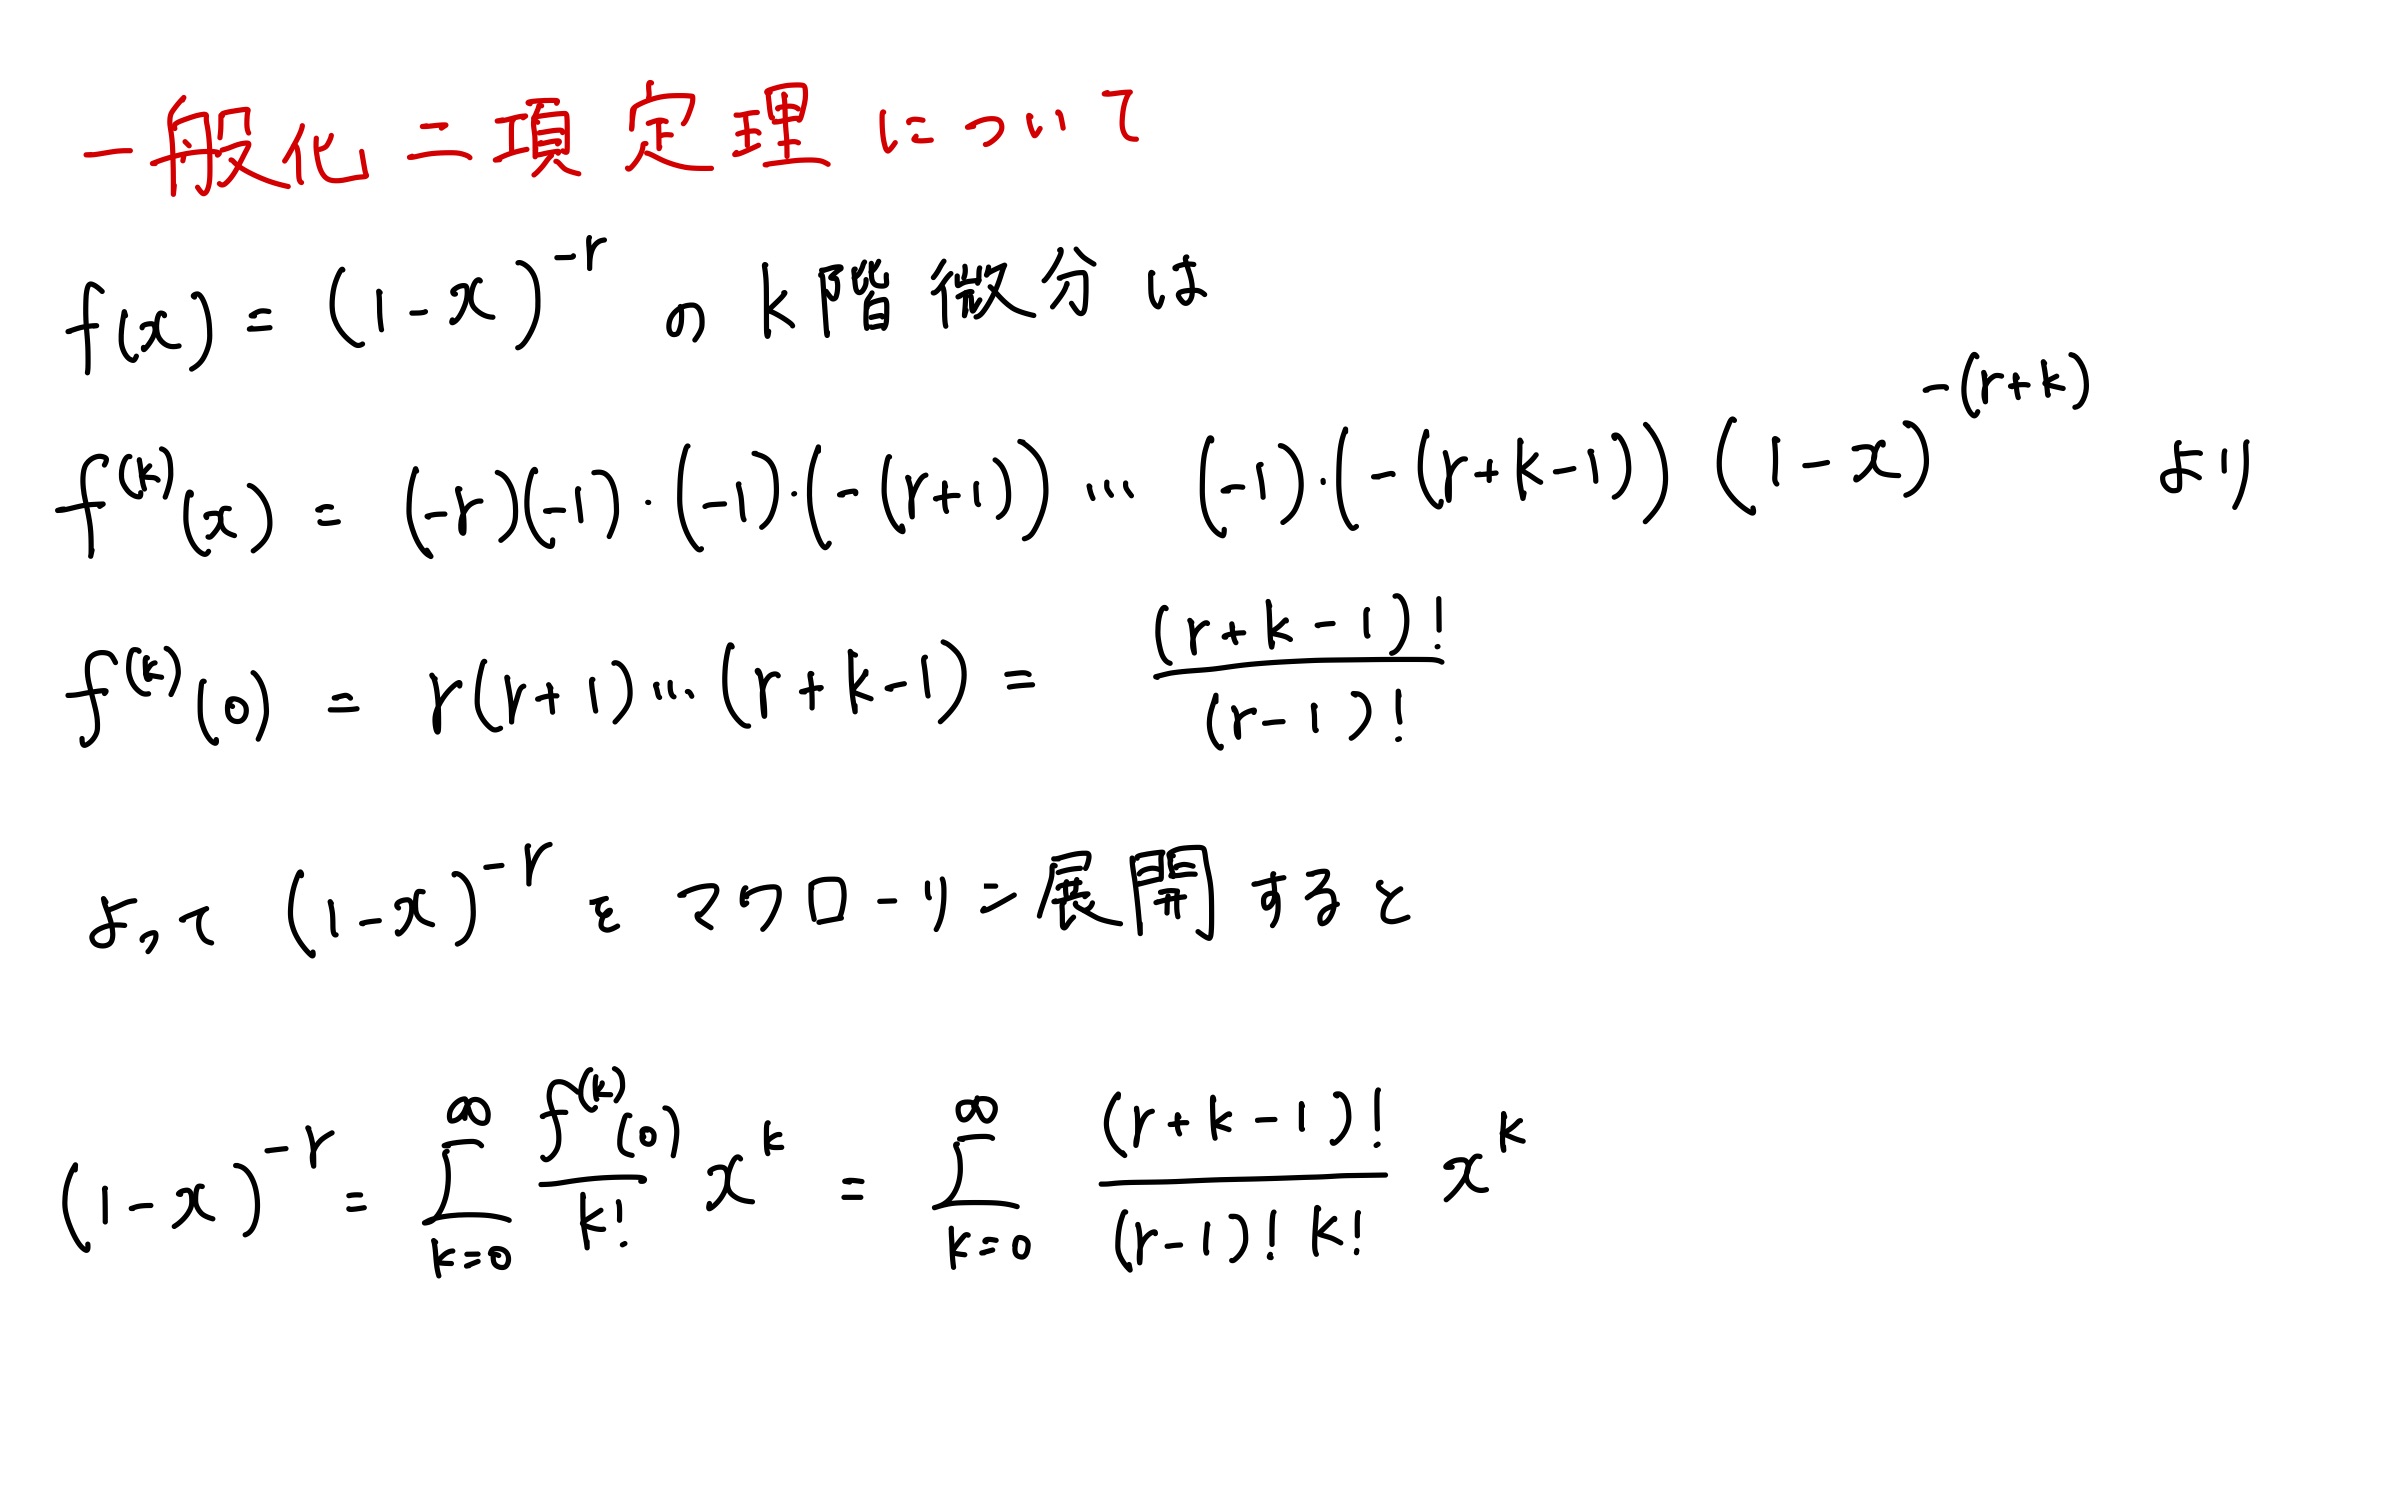 一般化二項定理について
f(x) = (1-x)^{-r} の k階微分は
f^{(k)}(x) = (-r)(-1)・(-1)・(-(r+1)) … (-1)・(-(r+k-1)) (1-x)^{-(r+k)} より
f^{(k)}(0) = r(r+1)…(r+k-1) = \frac{(r+k-1)!}{(r-1)!}
よって (1-x)^{-r} を マクローリン展開すると
(1-x)^{-r} = \sum_{k=0}^{∞} \frac{f^{(k)}(0)}{k!} x^k = \sum_{k=0}^{∞} \frac{(r+k-1)!}{(r-1)! k!} x^k